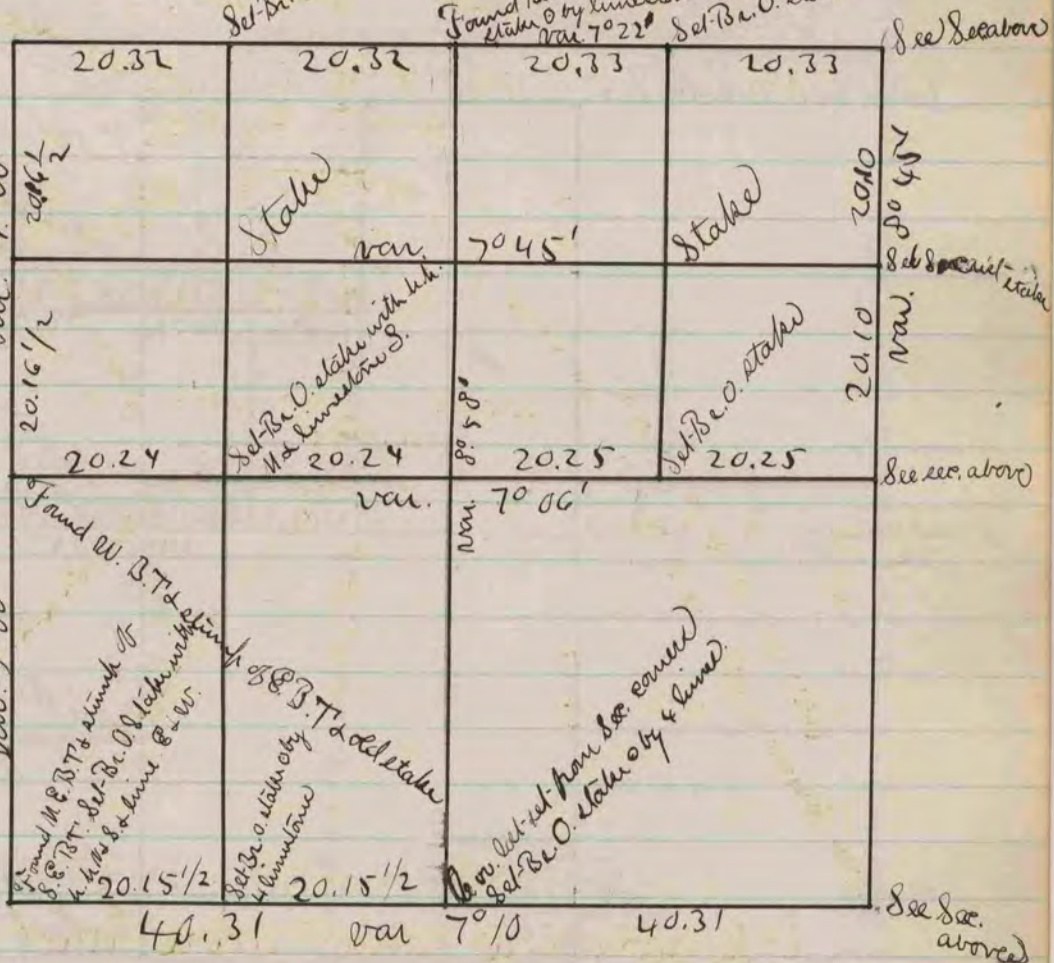 Set-Br.
Found
stake o by limes
var. 7° 22'
Set-Br. O.
See Sec above
20.32
20.32
20.33
20.33
Stake
Stake
20.10
8° 45'
var. 7° 45'
Set
stake
20.16 1/2
Set-Br. O. stake with h.h.
N & limestone S.
8° 58'
Set-Br. O. stake
20.10
var.
20.24
20.24
20.25
20.25
See sec. above
var. 7° 06'
var.
Found W. B.T. & stump of E.B.T. & old stake
Found N.E.B.T. & stump of
S.E. B.T. Set-Br. O. Stake with
h.h. N & S. & lime E & W.
Set Br. O. stake o by
4 limestone
set from Sec. corners
Set-Br. O. stake o by 4 limes.
20.15 1/2
20.15 1/2
40.31
var 7° 10
40.31
See Sec.
above